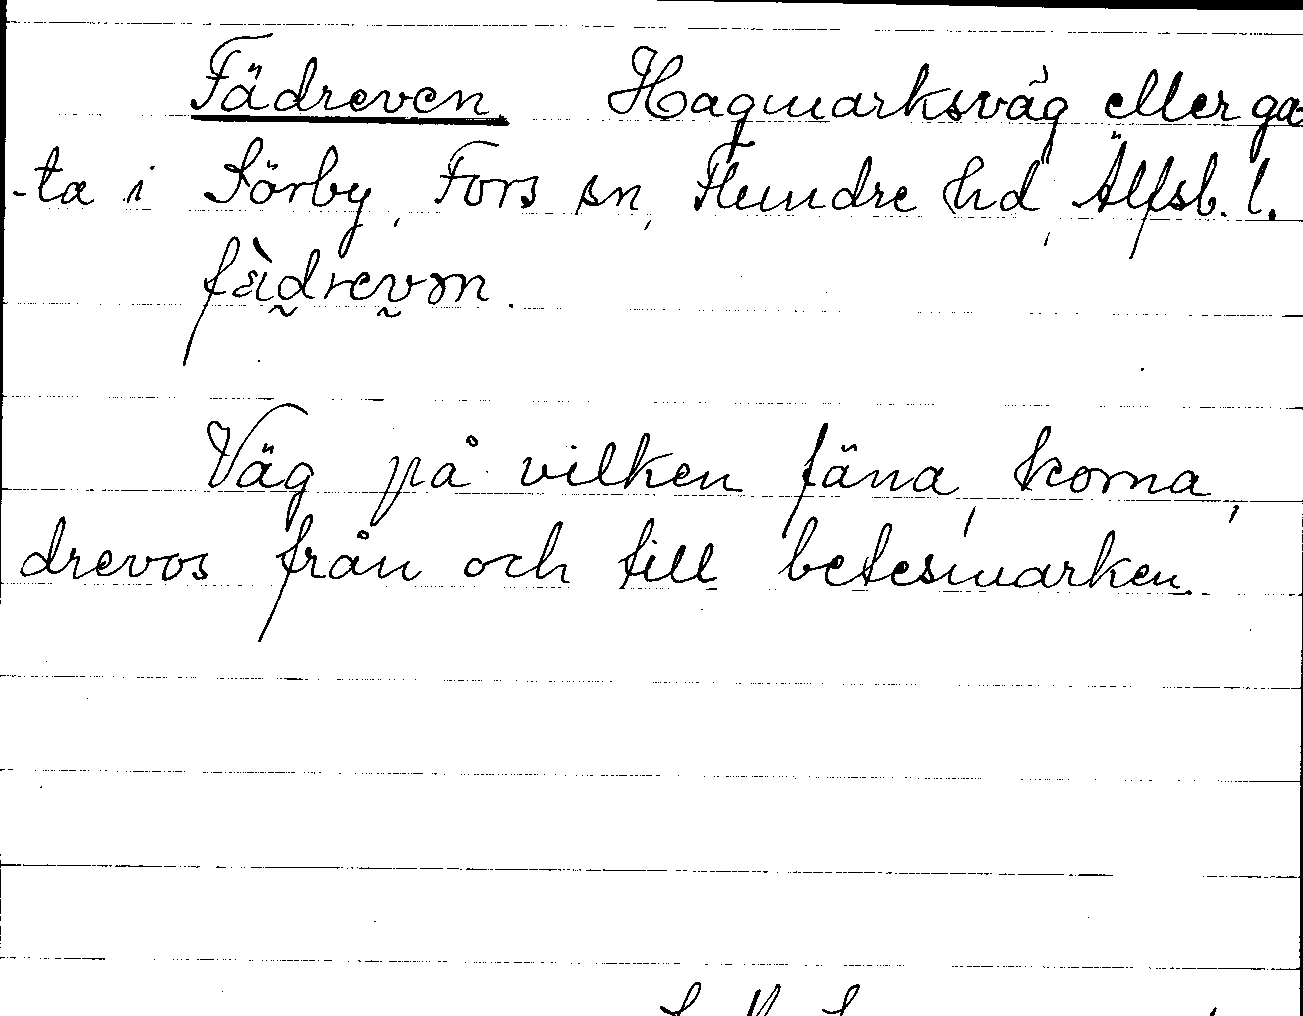 Fädreven. Hagmarksväg eller ga-
-ta i Sörby, Fors sn, Flundre hd, Älfsb. l.
Väg på vilken fäna, korna,
drevos från och till betesmarken.